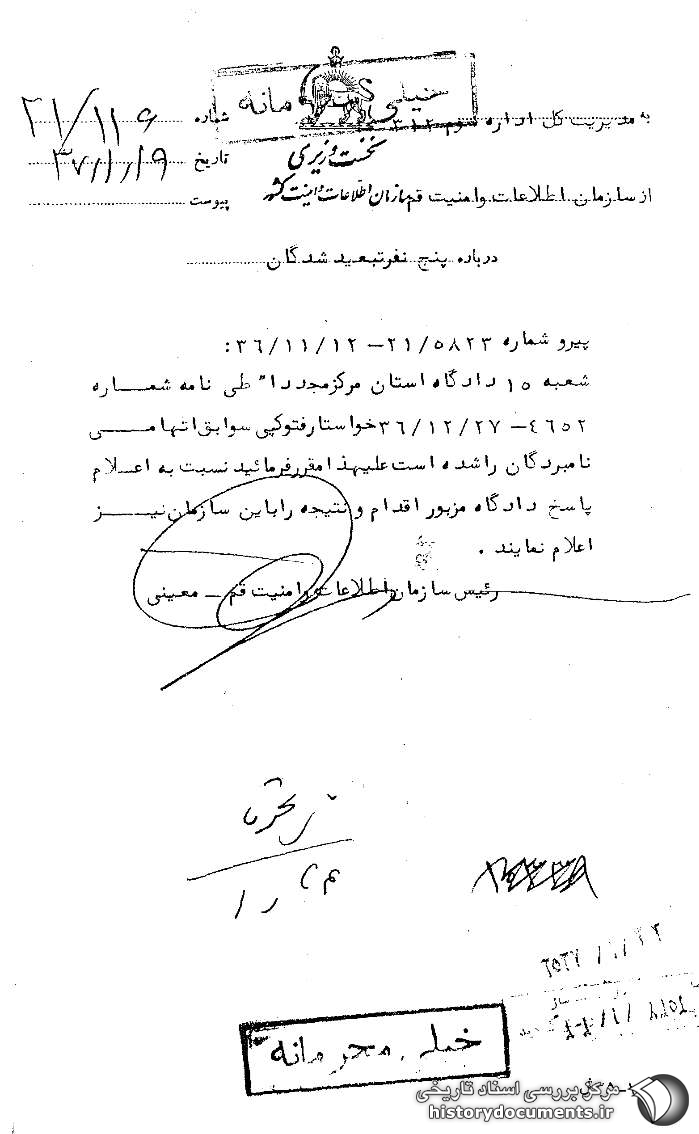 خیلی محرمانه
به مدیریت کل اداره سوم ۳۱۲
شماره ۲۱/۱۱۶
نخست وزیری
تاریخ ۳۷/۱/۱۹
از سازمان اطلاعات و امنیت قم
سازمان اطلاعات و امنیت کشور
پیوست
درباره پنج نفر تبعید شدگان
پیرو شماره ۲۱/۵۸۲۳ – ۳۶/۱۱/۱۲ :
شعبه ۱۵ دادگاه استان مرکز مجددا" طی نامه شماره
۴۶۵۲ – ۳۶/۱۲/۲۷ خواستار فتوکپی سوابق اتهامی
نامبردگان را شده است علیهذا مقرر فرمائید نسبت به اعلام
پاسخ دادگاه مزبور اقدام و نتیجه را باین سازمان نیز
اعلام نمایند .
رئیس سازمان اطلاعات و امنیت قم – معینی
خیلی محرمانه
مرکز بررسی اسناد تاریخی
historydocuments.ir